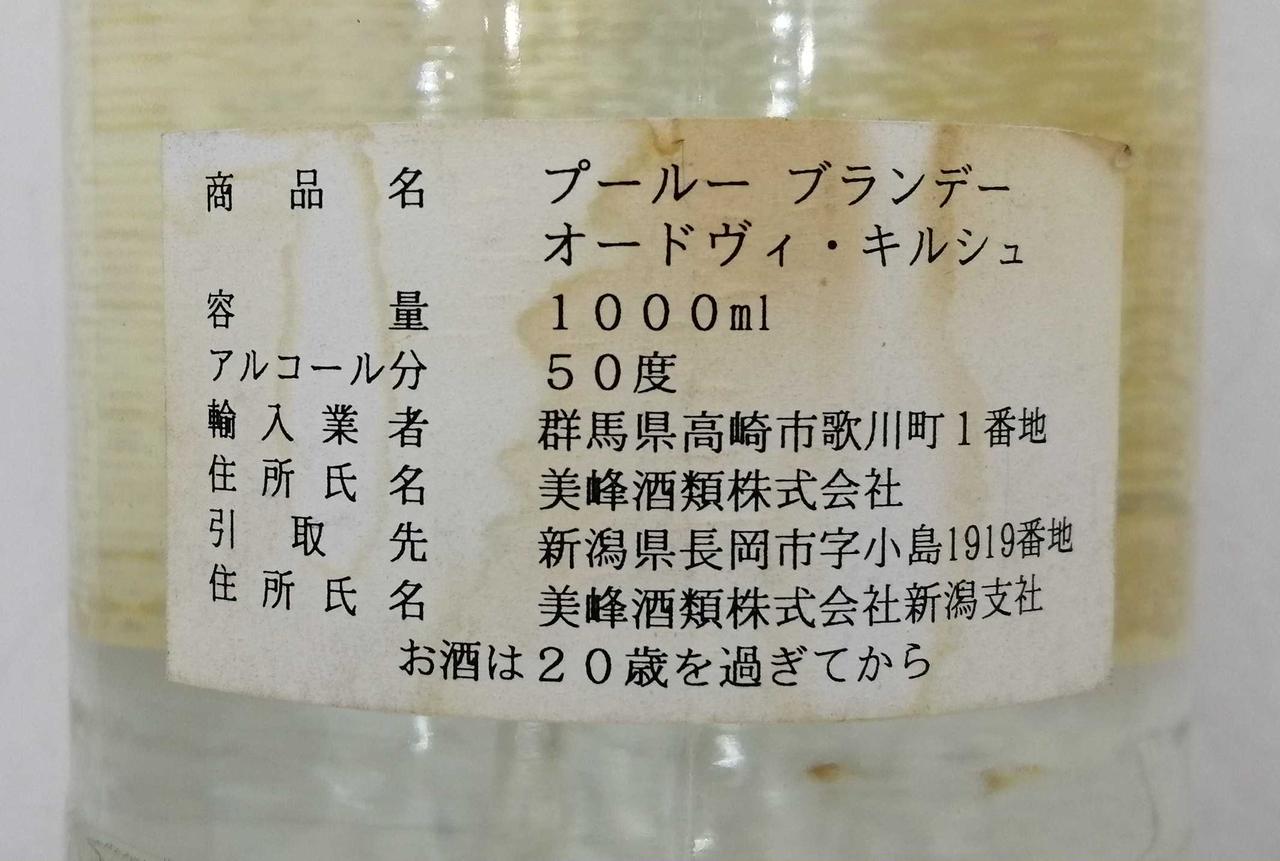 商品名 プールー ブランデー
オードヴィ・キルシュ
容量 １０００ml
アルコール分 ５０度
輸入業者 群馬県高崎市歌川町１番地
住所氏名 美峰酒類株式会社
引取先 新潟県長岡市字小島1919番地
住所氏名 美峰酒類株式会社新潟支社
お酒は２０歳を過ぎてから